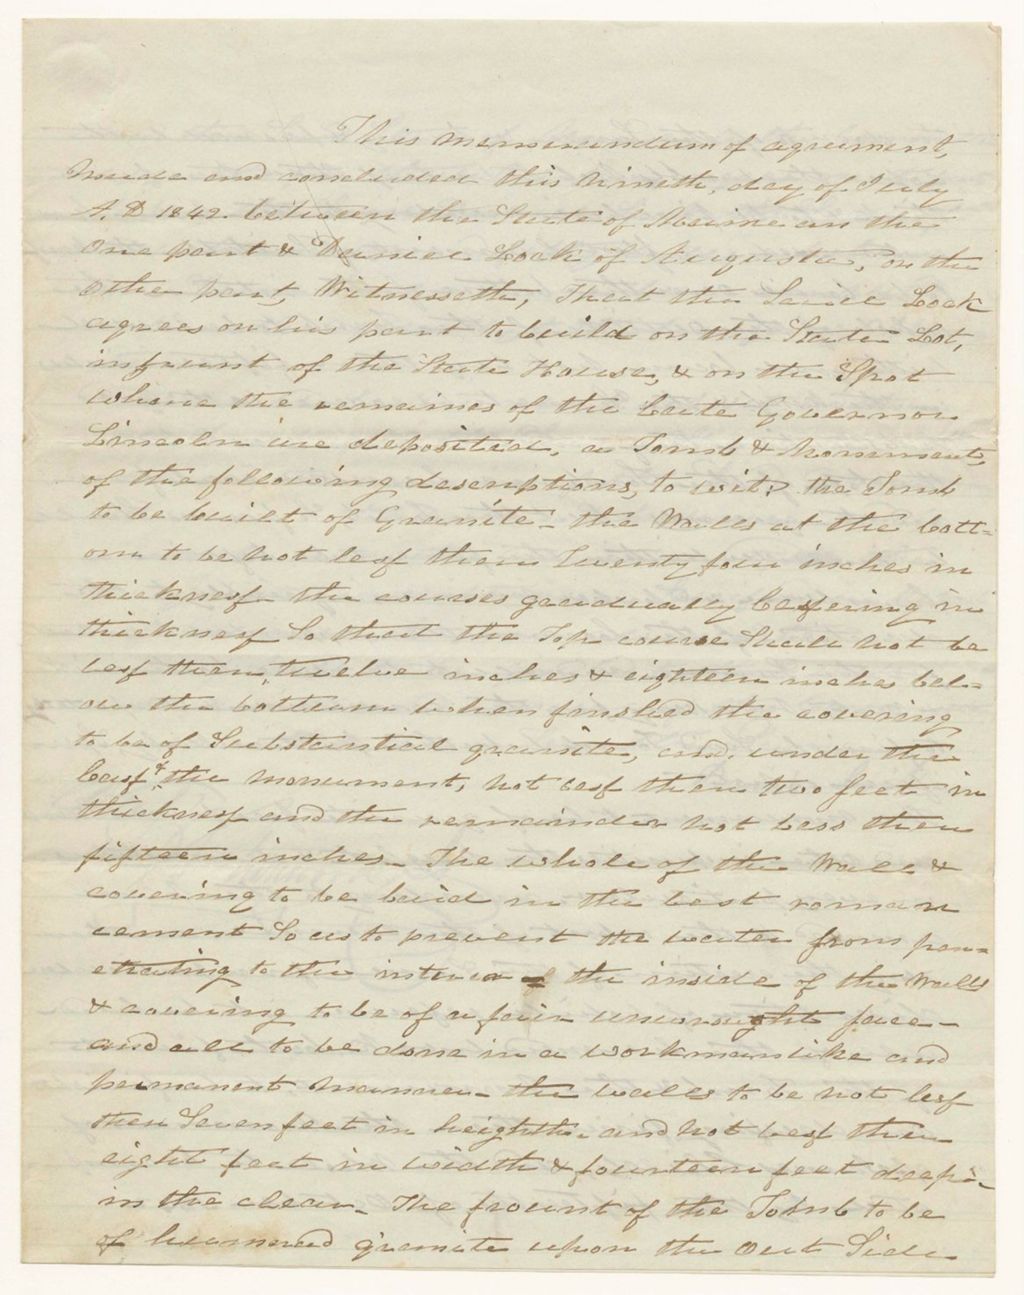 This memorandum of agreement,
made and concluded this Nineth, day of July
A. D 1842. between the State of Maine on the
One part & Daniel Lock of Augusta, on the
Other part, Witnesseth, That the Said Lock
agrees on his part to build on the State Lot,
in frount of the State House, & on the Spot
whare the remaines of the late Governor
Lincoln are deposited, a Tomb & Monument,
of the following descriptions, to wit, the Tomb
to be built of Granite - the Walls at the bott=
om to be not less then Twenty four inches in
thickness - the courses gradually lessering in
thickness So that the Top course Shall not be
less then twelve inches & eighteen inches bel=
ow the bottum when finshed the covering
to be of Substantial granite, and under the
base of the monument, not less then two feet in
thickness and the remainder not less then
fifteen inches - The whole of the Wall &
covering to be laid in the best roman
cement So as to prevent the water from pen=
etrating to the the inside of the Walls
& covering to be of a fair unwrought face -
and all to be done in a workmanlike and
permanent manner - the walls to be not less
then Seven feet in heighth - and not less then
eight feet in width & fourteen feet deep -
in the clear - The frount of the Tomb to be
of hammerd granite upon the Out Side